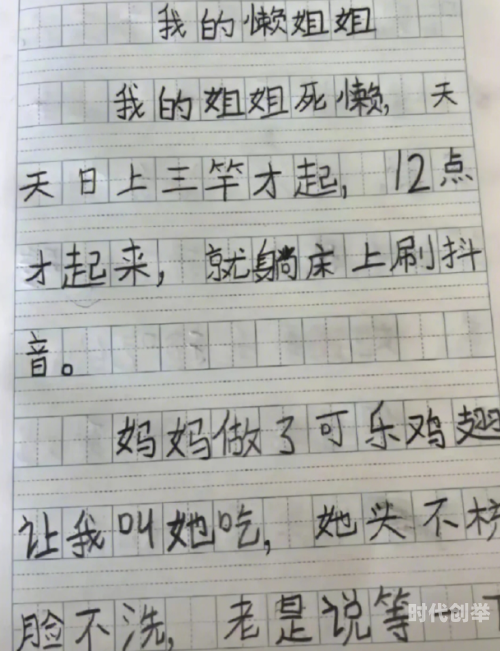 我的懒姐姐
我的姐姐死懒,天
天日上三竿才起,12点
才起来,就躺床上刷抖
音。
妈妈做了可乐鸡翅
让我叫她吃,她头不梳
脸不洗,老是说等一下
时代创举